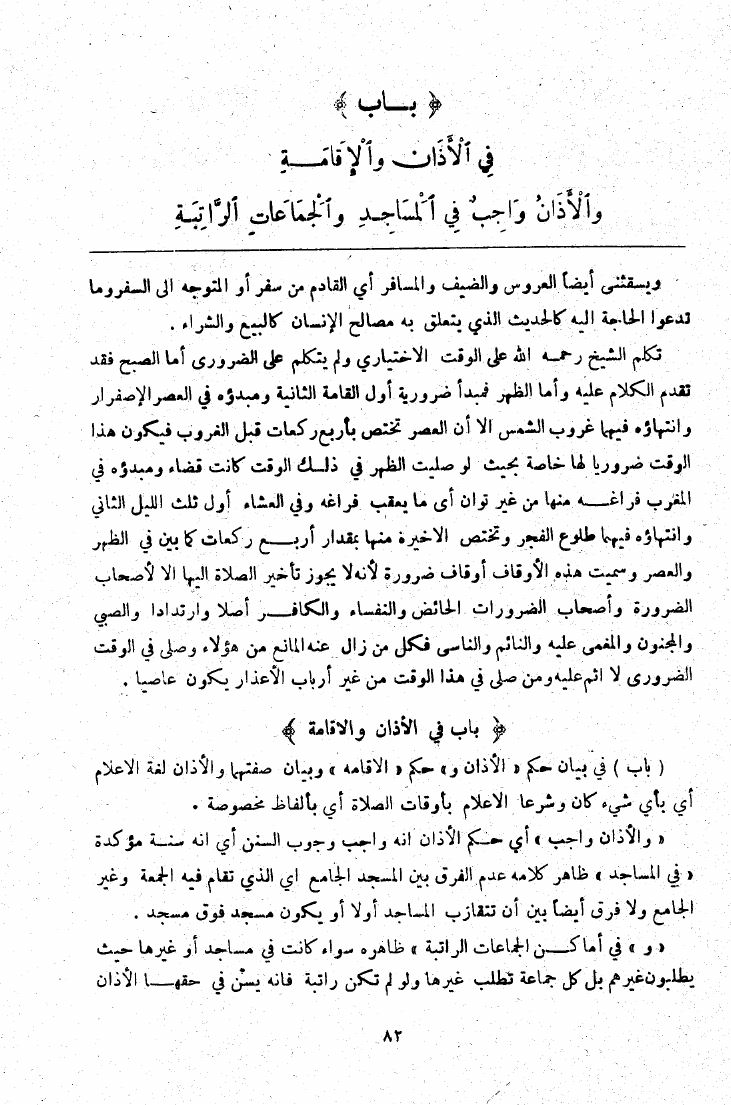 ﴿ بـــاب ﴾
فِي ٱلْأَذَانِ وٱلْإِقَامَـــةِ
وٱلْأَذَانُ وَاجِبٌ فِي ٱلْمَسَاجِـدِ وٱلْجَمَاعَاتِ ٱلرَّاتِبَـةِ
ويسقثنى أيضاً العروس والضيف والمسافر أي القادم من سفر أو المتوجه الى السفر وما
تدعوا الحاجة اليه كالحديث الذي يتعلق به مصالح الإنسان كالبيع والشراء .
تكلم الشيخ رحمـه الله على الوقت الاختياري ولم يتكلم على الضرورى أما الصبح فقد
تقدم الكلام عليه وأما الظهر فمبدأ ضرورية أول القامة الثانية ومبدؤه في العصر الإصفرار
وانتهاؤه فيهما غروب الشمس الا أن العصر تختص بأربع ركعات قبل الغروب فيكون هذا
الوقت ضروريا لها خاصة بحيث لو صليت الظهر في ذلـك الوقت كانت قضاء ومبدؤه في
المغرب فراغـــه منها من غير توان أى ما يعقب فراغه وفي العشاء أول ثلث الليل الثاني
وانتهاؤه فيهما طلوع الفجر وتختص الاخيرة منهما بمقدار أربــع ركعات كما بين في الظهر
والعصر وسميت هذه الأوقاف أوقاف ضرورة لأنه لا يجوز تأخير الصلاة اليها الا لأصحاب
الضرورة وأصحاب الضرورات الحائض والنفساء والكافــر أصلا وارتدادا والصبي
والمجنون والمغمى عليه والنائم والناسى فكل من زال عنه المانع من هؤلاء وصلى في الوقت
الضرورى لا اثم عليه ومن صلى في هذا الوقت من غير أرباب الأعذار يكون عاصيا .
﴿ باب في الأذان والاقامة ﴾
( باب ) في بيان حكم « الأذان و» حكم « الاقامه » وبيان صفتهما والأذان لغة الاعلام
أي بأي شيء كان وشرعا الاعلام بأوقات الصلاة أي بألفاظ مخصوصة .
« والأذان واجب » أي حـكم الأذان انه واجب وجوب السنن أي انه سنـة مؤكدة
« في المساجد » ظاهر كلامه عدم الفرق بين المسجد الجامع اي الذي تقام فيه الجمعة وغير
الجامع ولا فرق أيضاً بين أن تتقازب المساجد أولا أو يكون مسجد فوق مسجد .
« و » في أماكــن الجماعات الراتبة « ظاهره سواء كانت في مساجد أو غيرها حيث
يطلبون غيرهم بل كل جماعة تطلب غيرها ولو لم تكن راتبة فانه يسنّ في حقهــا الأذان
٨٢